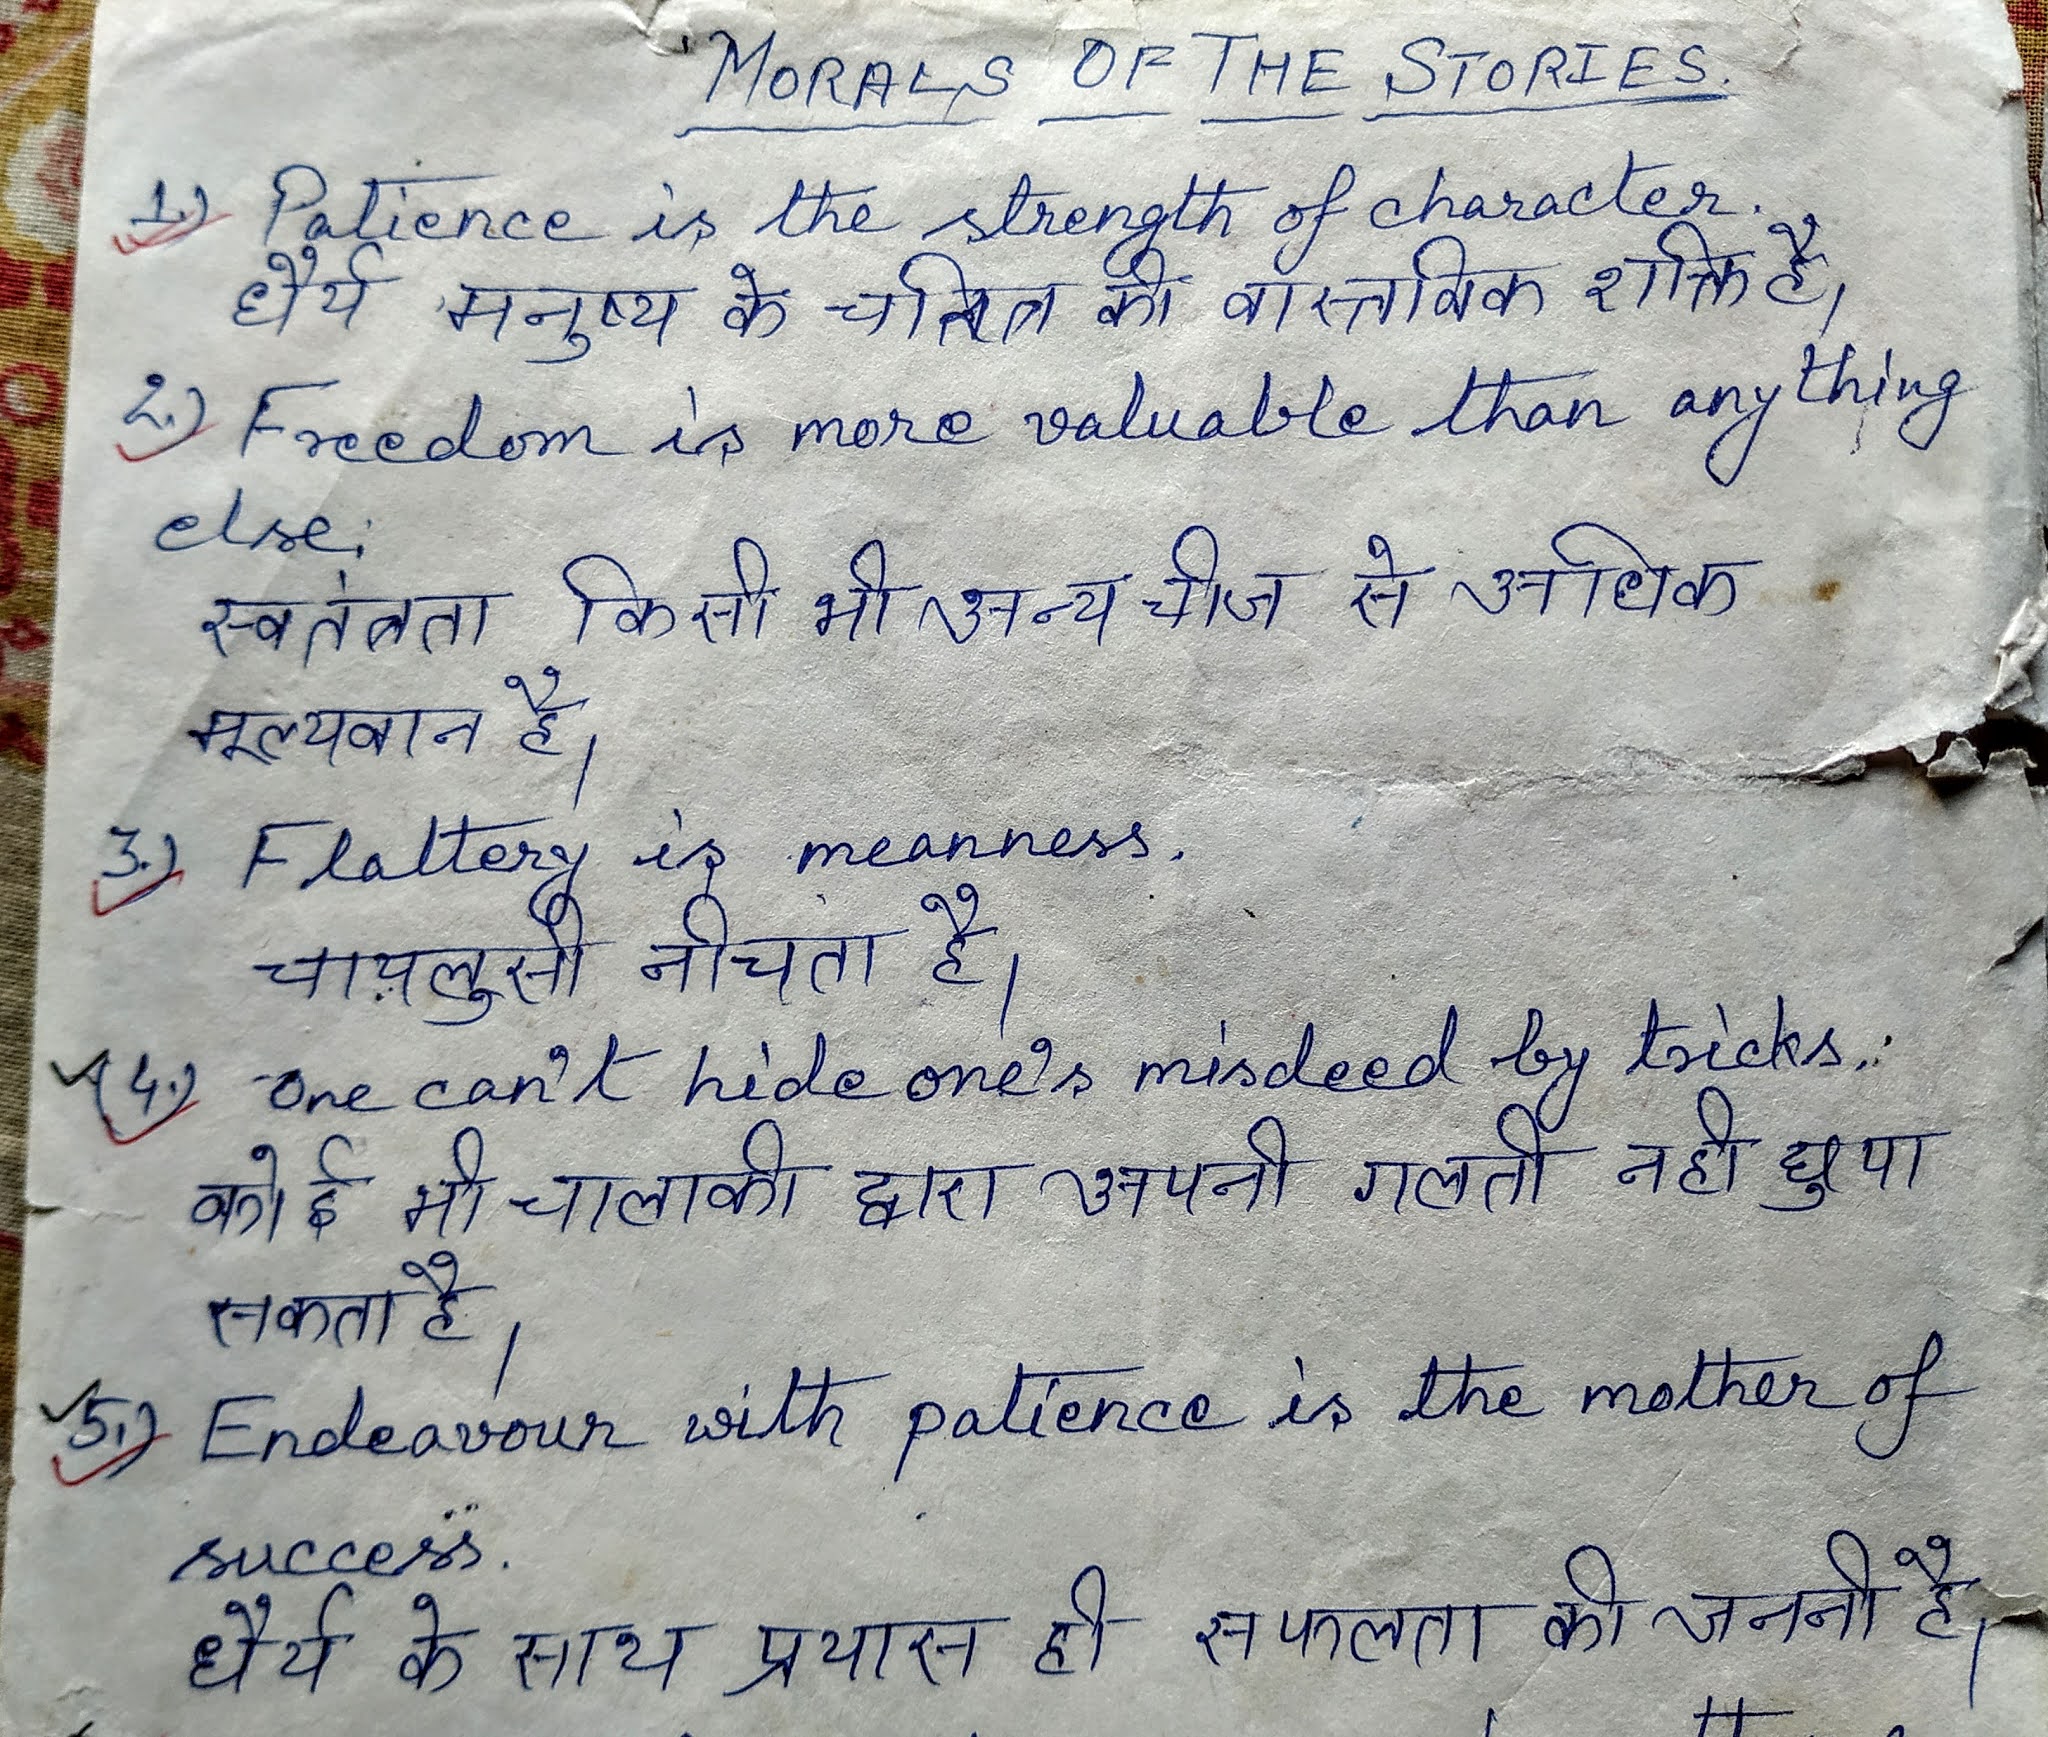 MORALS OF THE STORIES.
1.) Patience is the strength of character.
धैर्य मनुष्य के चरित्र की वास्तविक शक्ति है।
2.) Freedom is more valuable than anything
else.
स्वतंत्रता किसी भी अन्य चीज से अधिक
मूल्यवान है।
3.) Flattery is meanness.
चापलुसी नीचता है।
(4.) One can't hide one's misdeed by tricks.
कोई भी चालाकी द्वारा अपनी गलती नही छुपा
सकता है।
5.) Endeavour with patience is the mother of
success.
धैर्य के साथ प्रयास ही सफलता की जननी है।